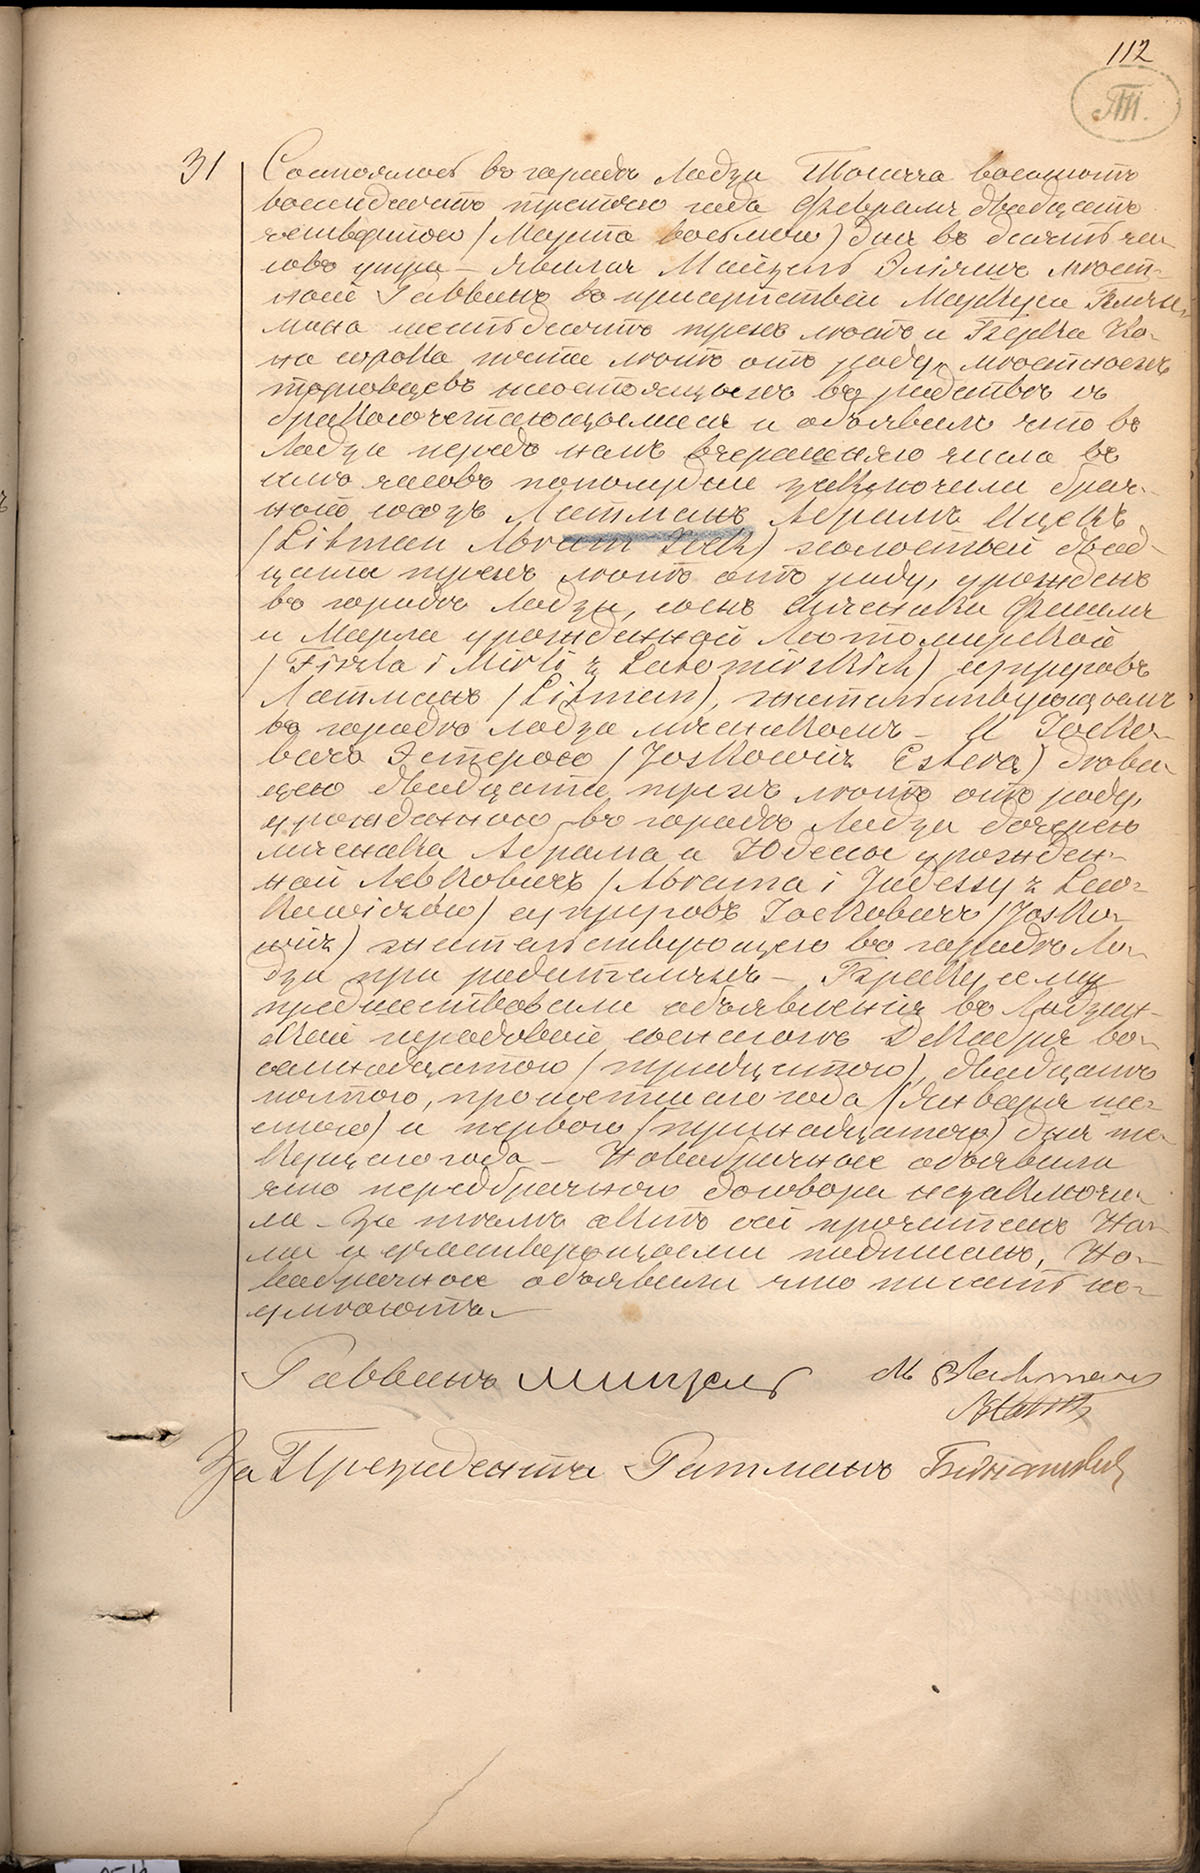 112
31 Состоялось въ городѣ Лодзи Тысяча восемьсотъ
восемдесятъ третьяго года Февраля двадцать
четвертого (Марта восьмого) дня въ десять ча-
совъ утра – явился Майзель Эліяшъ мѣст-
ный Раввинъ въ присутствіи Маркуса
мана шестьдесятъ трехъ лѣтъ и Берка Ко-
на сорока пяти лѣтъ отъ роду, мѣстныхъ
торговцевъ несостоящихъ въ родствѣ съ
бракосочетающимися и объявилъ что въ
Лодзи передъ нимъ вчерашняго числа въ
часовъ пополудни заключили брач-
ный союзъ Литманъ Абрамъ Ицекъ
(Litman Abram Icek) холостый двад-
цати трехъ лѣтъ отъ роду, урожденъ
въ городѣ Лодзи, сынъ мѣщанъ Фишля
и Мирли урожденной Лютомирской
(Fiszla i Mirli z Lutomirskich) супруговъ
Литманъ (Litman), жительствующимъ
въ городѣ Лодзи мѣщаномъ – И Іоско-
вичъ Эстерою (Joskowicz Estera) дѣви-
цею двадцати трехъ лѣтъ отъ роду,
урожденною въ городѣ Лодзи дочерью
мѣщанъ Абрама и Юдесы урожден-
ной Левковичъ (Abrama i Judessy z Lew-
kowiczów) супруговъ Іосковичъ (Josko-
wicz) жительствующею въ городѣ Ло-
дзи при родителяхъ – Браку сему
предшествовали объявленія въ Лодзин-
ской синагогѣ Декабря во-
семнадцатого (тридцатого), двадцать
пятого, прошедшаго года (Января ше-
стого) и первого (тринадцатого) дня те-
кущаго года – Новобрачные объявили
что предбрачного договора незаключи-
ли – За тѣмъ актъ сей прочитанъ На-
ми и подписанъ, Но-
вобрачные объявили что писать не-
умѣютъ. –
Раввинъ Майзель
За Президента Ратманъ